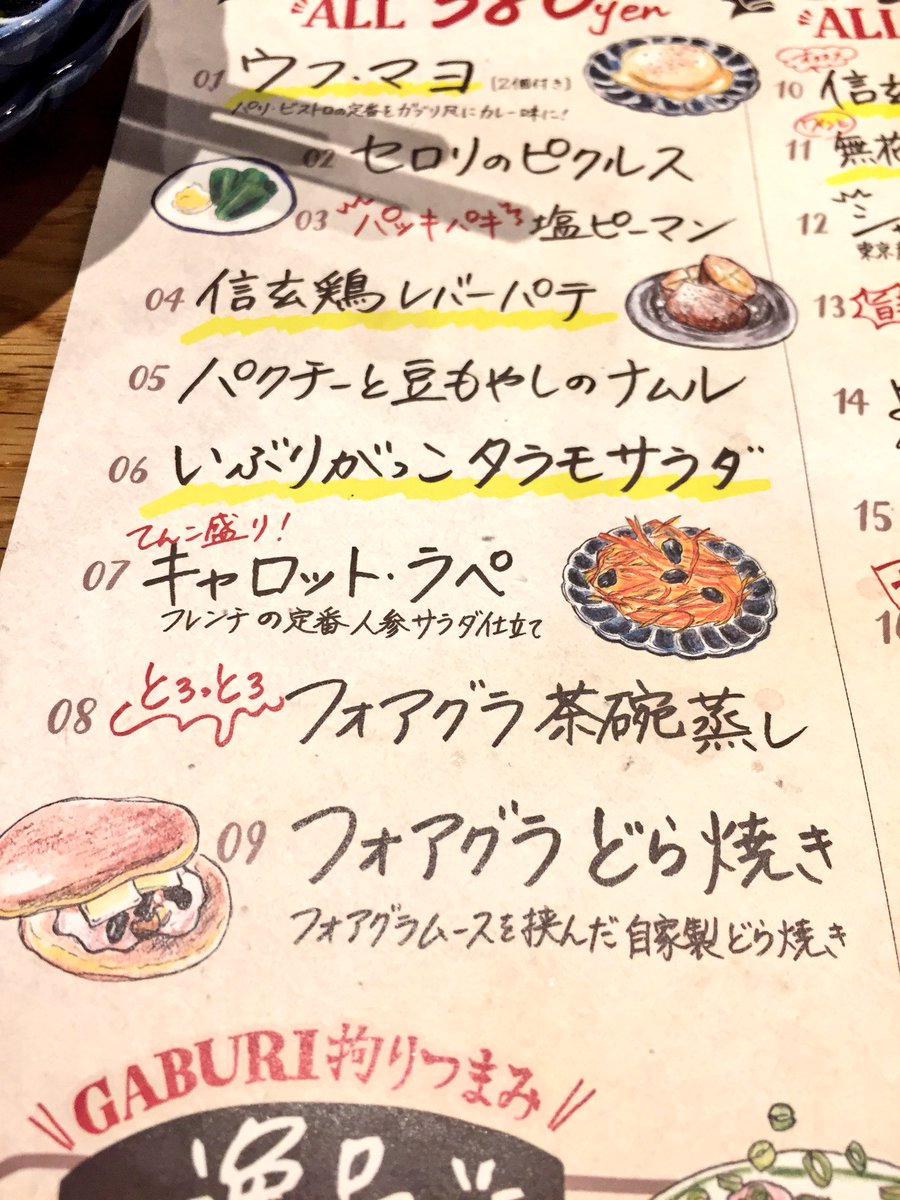 ALL 380yen
01 ウフ・マヨ [2個付き]
パリ・ビストロの定番をガブリ尺にカレー味に!
02 セロリのピクルス
03 パッキパキ 塩ピーマン
04 信玄鶏レバーパテ
05 パクチーと豆もやしのナムル
06 いぶりがっこタラモサラダ
てんこ盛り!
07 キャロット・ラペ
フレンチの定番人参サラダ仕立て
08 とろっとろ フォアグラ茶碗蒸し
09 フォアグラどら焼き
フォアグラムースを挟んだ自家製どら焼き
GABURI拘りつまみ
ALL
10 信玄
11 無花
12 シャ
東京
13
14
15
16